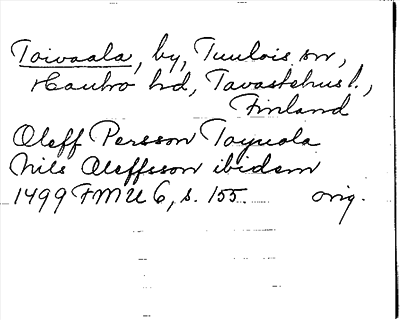 Toivaala, by, Tuulois sn,
Hauho hd, Tavastehus l.,
Finland
Oleff Persson Toyuola
Nils Oleffsson ibidem
1499 FMU 6, s. 155. orig.